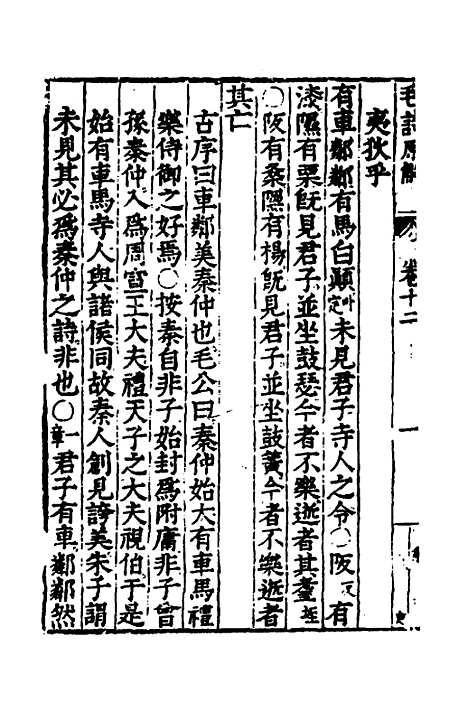 毛詩原解 卷十二 一
夷狄乎
有車鄰鄰有馬白顛叶定未見君子寺人之令〇阪反有
漆隰有栗旣見君子並坐鼓瑟今者不樂逝者其耋垤
〇阪有桑隰有楊旣見君子並坐鼓簧今者不樂逝者
其亡
古序曰車鄰美秦仲也毛公曰秦仲始大有車馬禮
樂侍御之好焉〇按秦自非子始封爲附庸非子曾
孫秦仲入爲周宣王大夫禮天子之大夫視伯于是
始有車馬寺人與諸侯同故秦人創見誇美朱子謂
未見其必爲秦仲之詩非也〇一章君子有車鄰鄰然